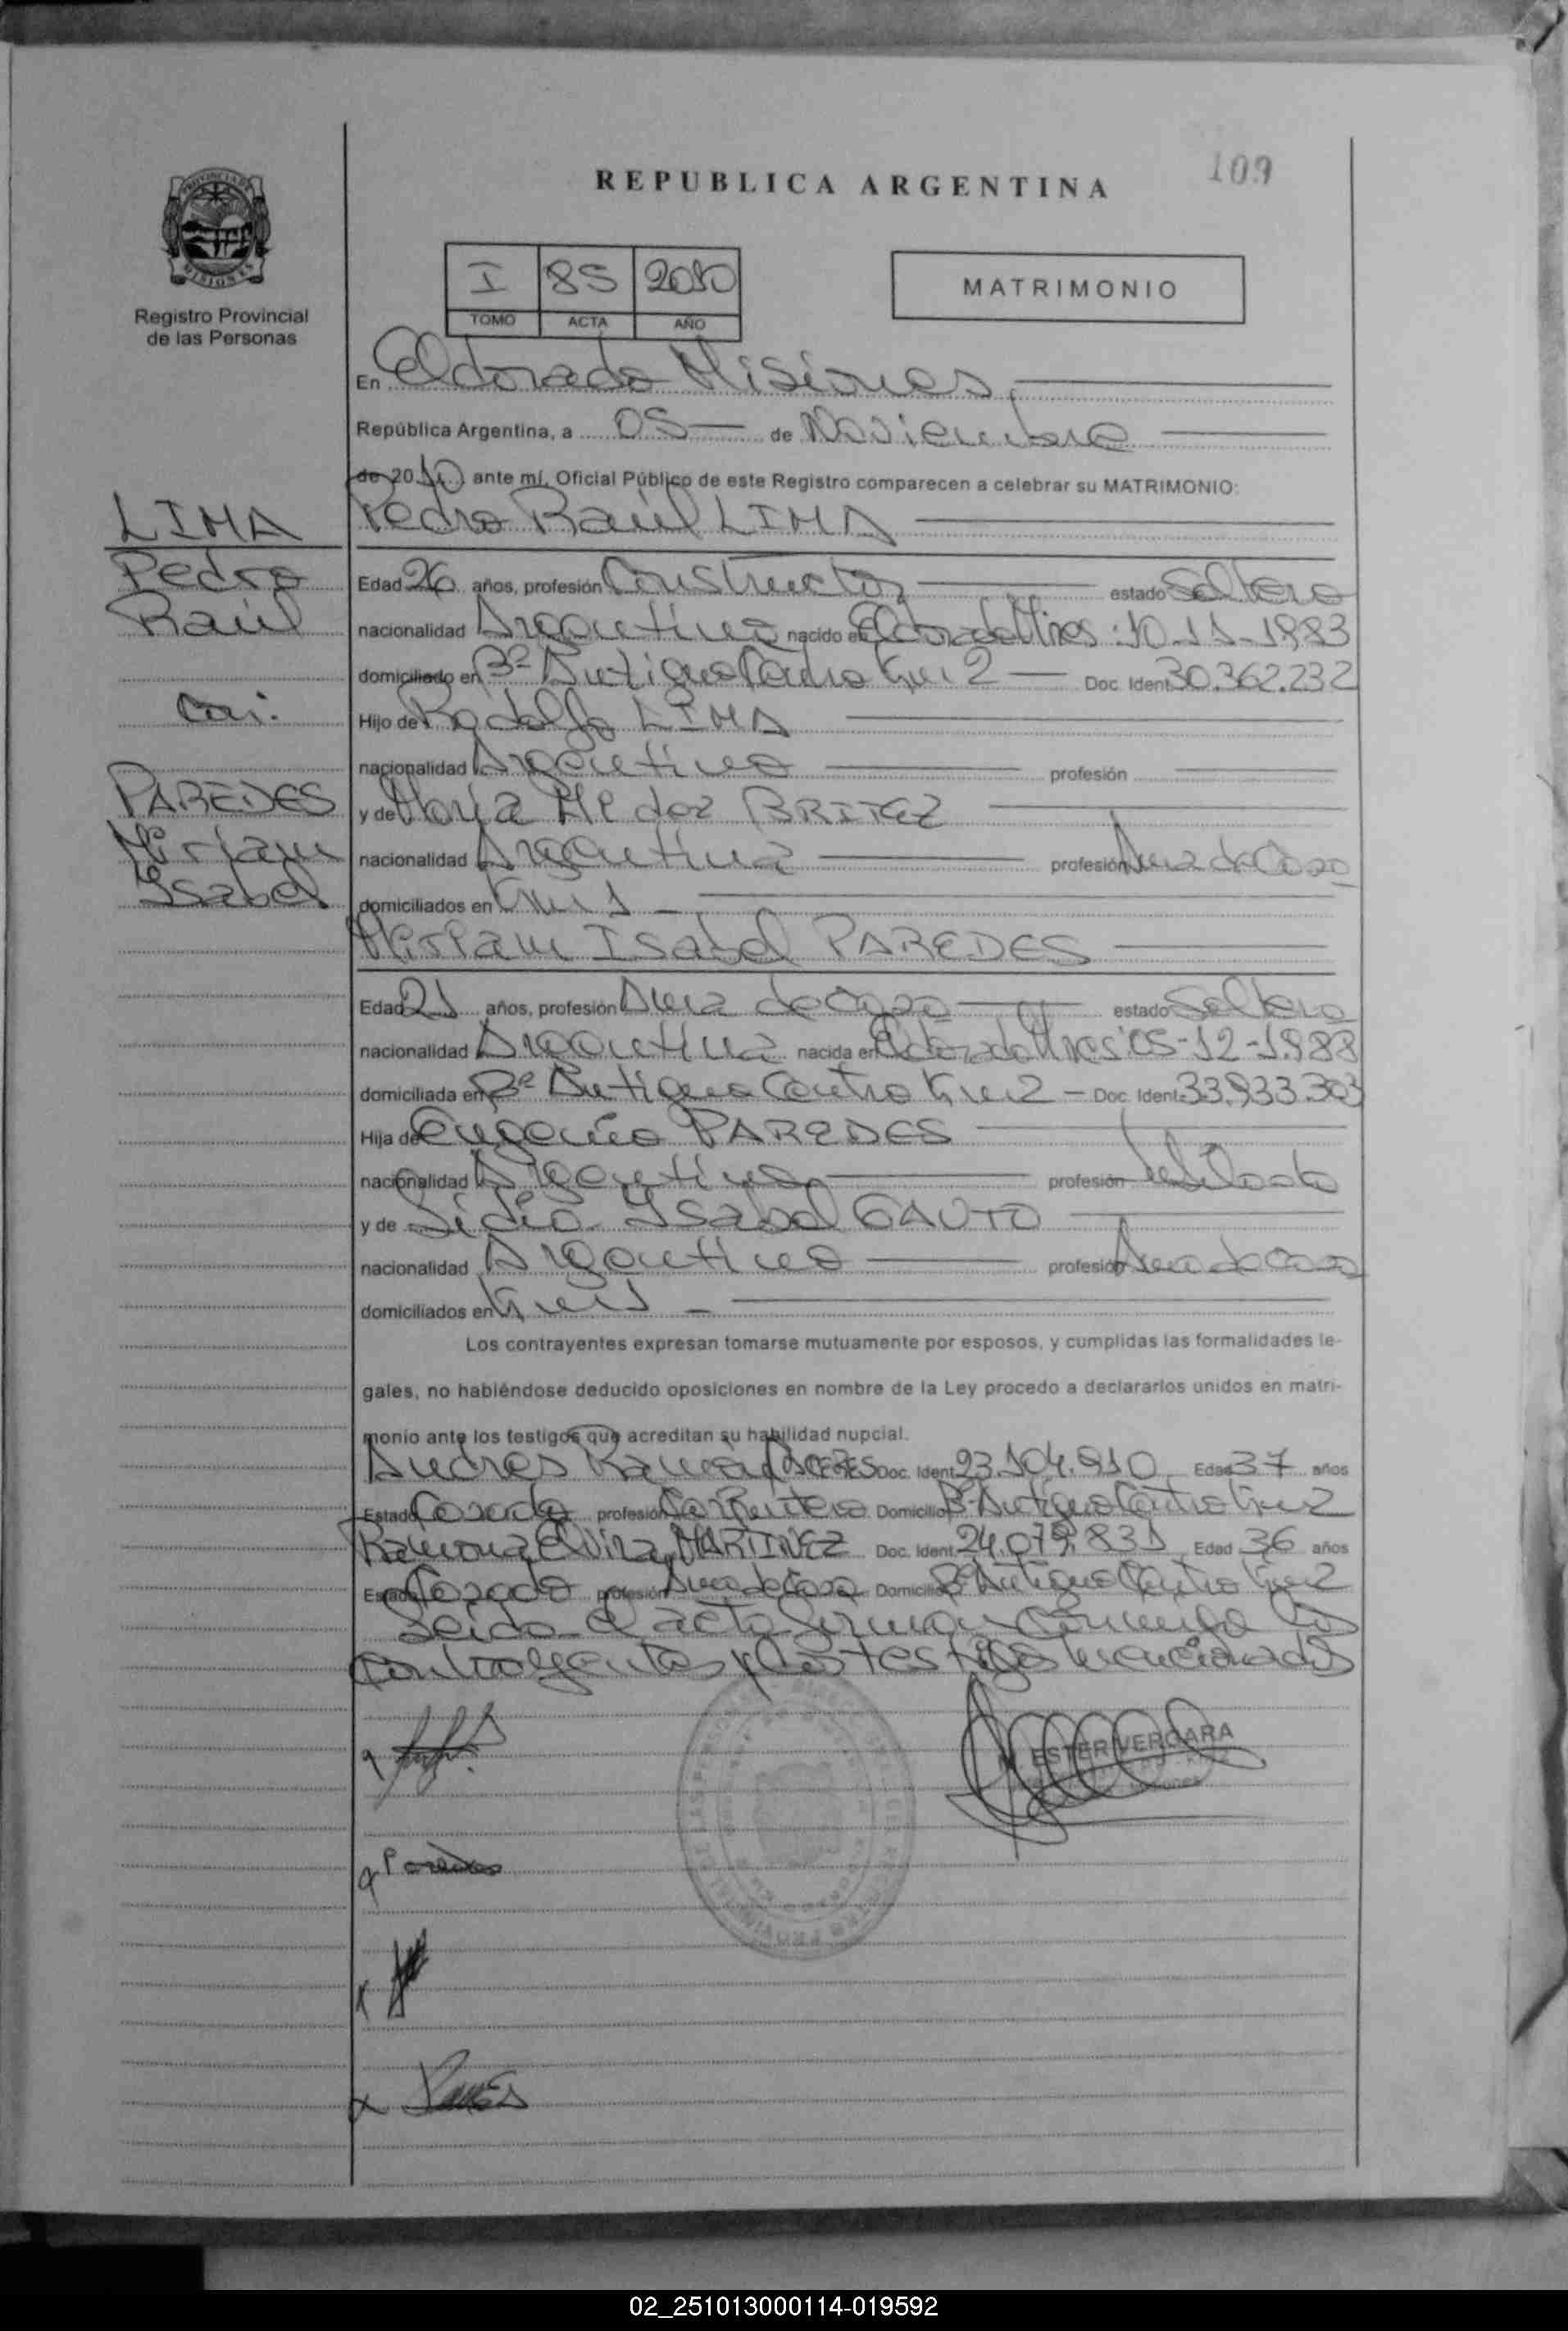 109
REPUBLICA ARGENTINA
PROVINCIA DE
MISIONES
Registro Provincial
de las Personas
I 85 2010
TOMO ACTA AÑO
MATRIMONIO
En Eldorado Misiones,
República Argentina, a 05 de Noviembre
de 2010 ante mí, Oficial Público de este Registro comparecen a celebrar su MATRIMONIO:
LIMA
Pedro
Raúl
Con:
PAREDES
Miriam
Ysabel
Pedro Raúl LIMA
Edad 26 años, profesión Constructor estado Soltero
nacionalidad Argentino nacido en Eldorado Mnes: 10-11-1983
domiciliado en Bº Antiguo Centro Km 2 Doc. Ident. 30.362.232
Hijo de Rodolfo LIMA
nacionalidad Argentino profesión
y de María BRITEZ
nacionalidad Argentina profesión Ama de Casa
domiciliados en Km 1
Miriam Isabel PAREDES
Edad 21 años, profesión Ama de Casa estado Soltera
nacionalidad Argentina nacida en Eldorado Mnes: 05-12-1988
domiciliada en Bº Antiguo Centro Km 2 - Doc. Ident. 33.933.303
Hija de Eugenio PAREDES
nacionalidad Argentino profesión Jubilado
y de Lidia Ysabel GAUTO
nacionalidad Argentina profesión Ama de Casa
domiciliados en Km 1
Los contrayentes expresan tomarse mutuamente por esposos, y cumplidas las formalidades le-
gales, no habiéndose deducido oposiciones en nombre de la Ley procedo a declararlos unidos en matri-
monio ante los testigos que acreditan su habilidad nupcial.
Andres Ramón Doc. Ident. 23.104.910 Edad 37 años
Estado Casado profesión Carpintero Domicilio Bº Antiguo Centro Km 2
Ramona Elvira MARTINEZ Doc. Ident. 24.079.831 Edad 36 años
Estado Casada profesión Ama de Casa Domicilio Bº Antiguo Centro Km 2
Leída el acta firman conmigo los
contrayentes y los testigos mencionados
ESTER VERGARA
Paredes
02_251013000114-019592